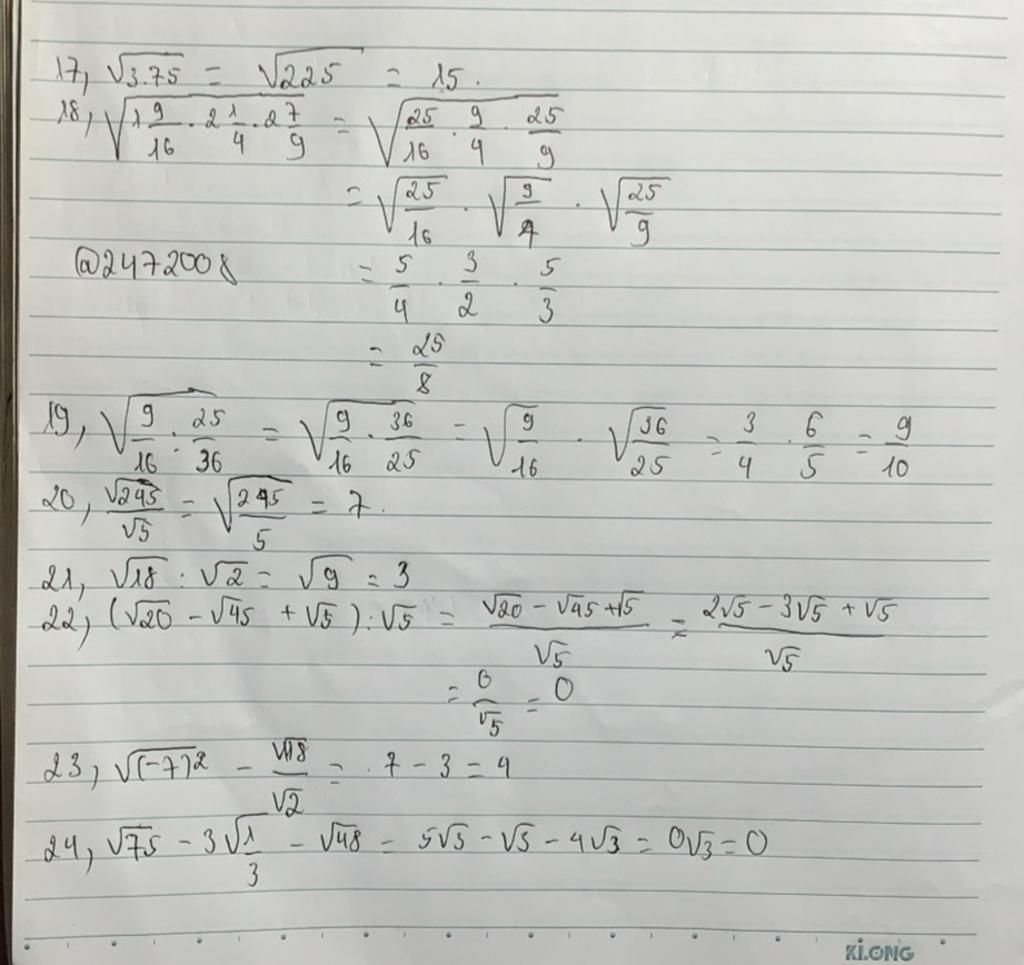 17, √3.75 = √225 = 15.
18, √(1 9/16 . 2 1/4 . 2 7/9) = √(25/16 . 9/4 . 25/9)
= √(25/16) . √(9/4) . √(25/9)
@2472008
= 5/4 . 3/2 . 5/3
= 25/8
19, √(9/16 : 25/36) = √(9/16 . 36/25) = √(9/16) . √(36/25) = 3/4 . 6/5 = 9/10
20, √245/√5 = √(245/5) = 7.
21, √18 : √2 = √9 = 3
22, (√20 - √45 + √5) : √5 = (√20 - √45 + √5)/√5 = (2√5 - 3√5 + √5)/√5
= 0/√5 = 0
23, √(-7)² - √18/√2 = 7 - 3 = 4
24, √75 - 3√(1/3) - √48 = 5√3 - √3 - 4√3 = 0√3 = 0
KiLONG